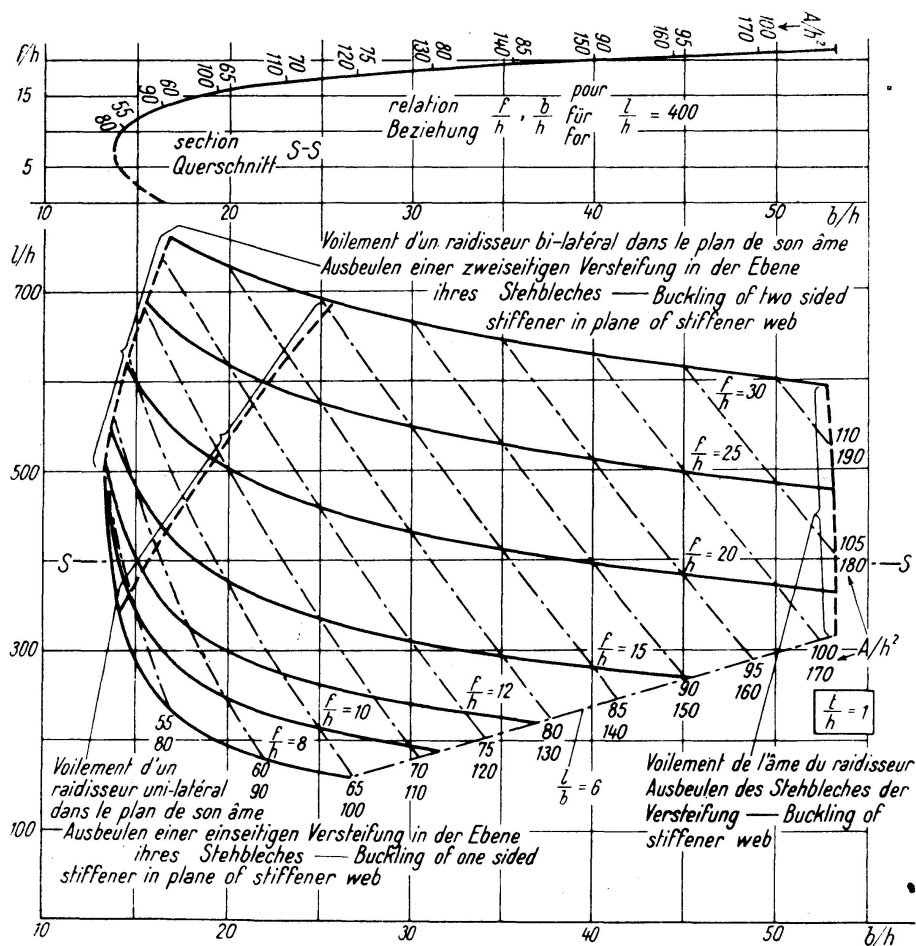 60 80 100 120 140 160 100 A/h²
f/h 55 90 60 65 110 70 75 130 80 85 150 90 95 170
15
relation f/h , b/h pour l/h = 400
Beziehung für
for
section S-S
Querschnitt
5
10 20 30 40 50 b/h
l/h
Voilement d'un raidisseur bi-latéral dans le plan de son âme
Ausbeulen einer zweiseitigen Versteifung in der Ebene
ihres Stehbleches — Buckling of two sided
stiffener in plane of stiffener web
700
f/h = 30
110
190
f/h = 25
500
105
180
S S
f/h = 20
300
f/h = 15
100 A/h²
170
95
160
90
150
85
140
80
130
75
120
70
110
65
100
60
90
55
80
f/h = 12
f/h = 10
f/h = 8
t/h = 1
l/b = 6
Voilement d'un
raidisseur uni-latéral
dans le plan de son âme
Ausbeulen einer einseitigen Versteifung in der Ebene
ihres Stehbleches — Buckling of one sided
stiffener in plane of stiffener web
Voilement de l'âme du raidisseur
Ausbeulen des Stehbleches der
Versteifung — Buckling of
stiffener web
100
10 20 30 40 50 b/h